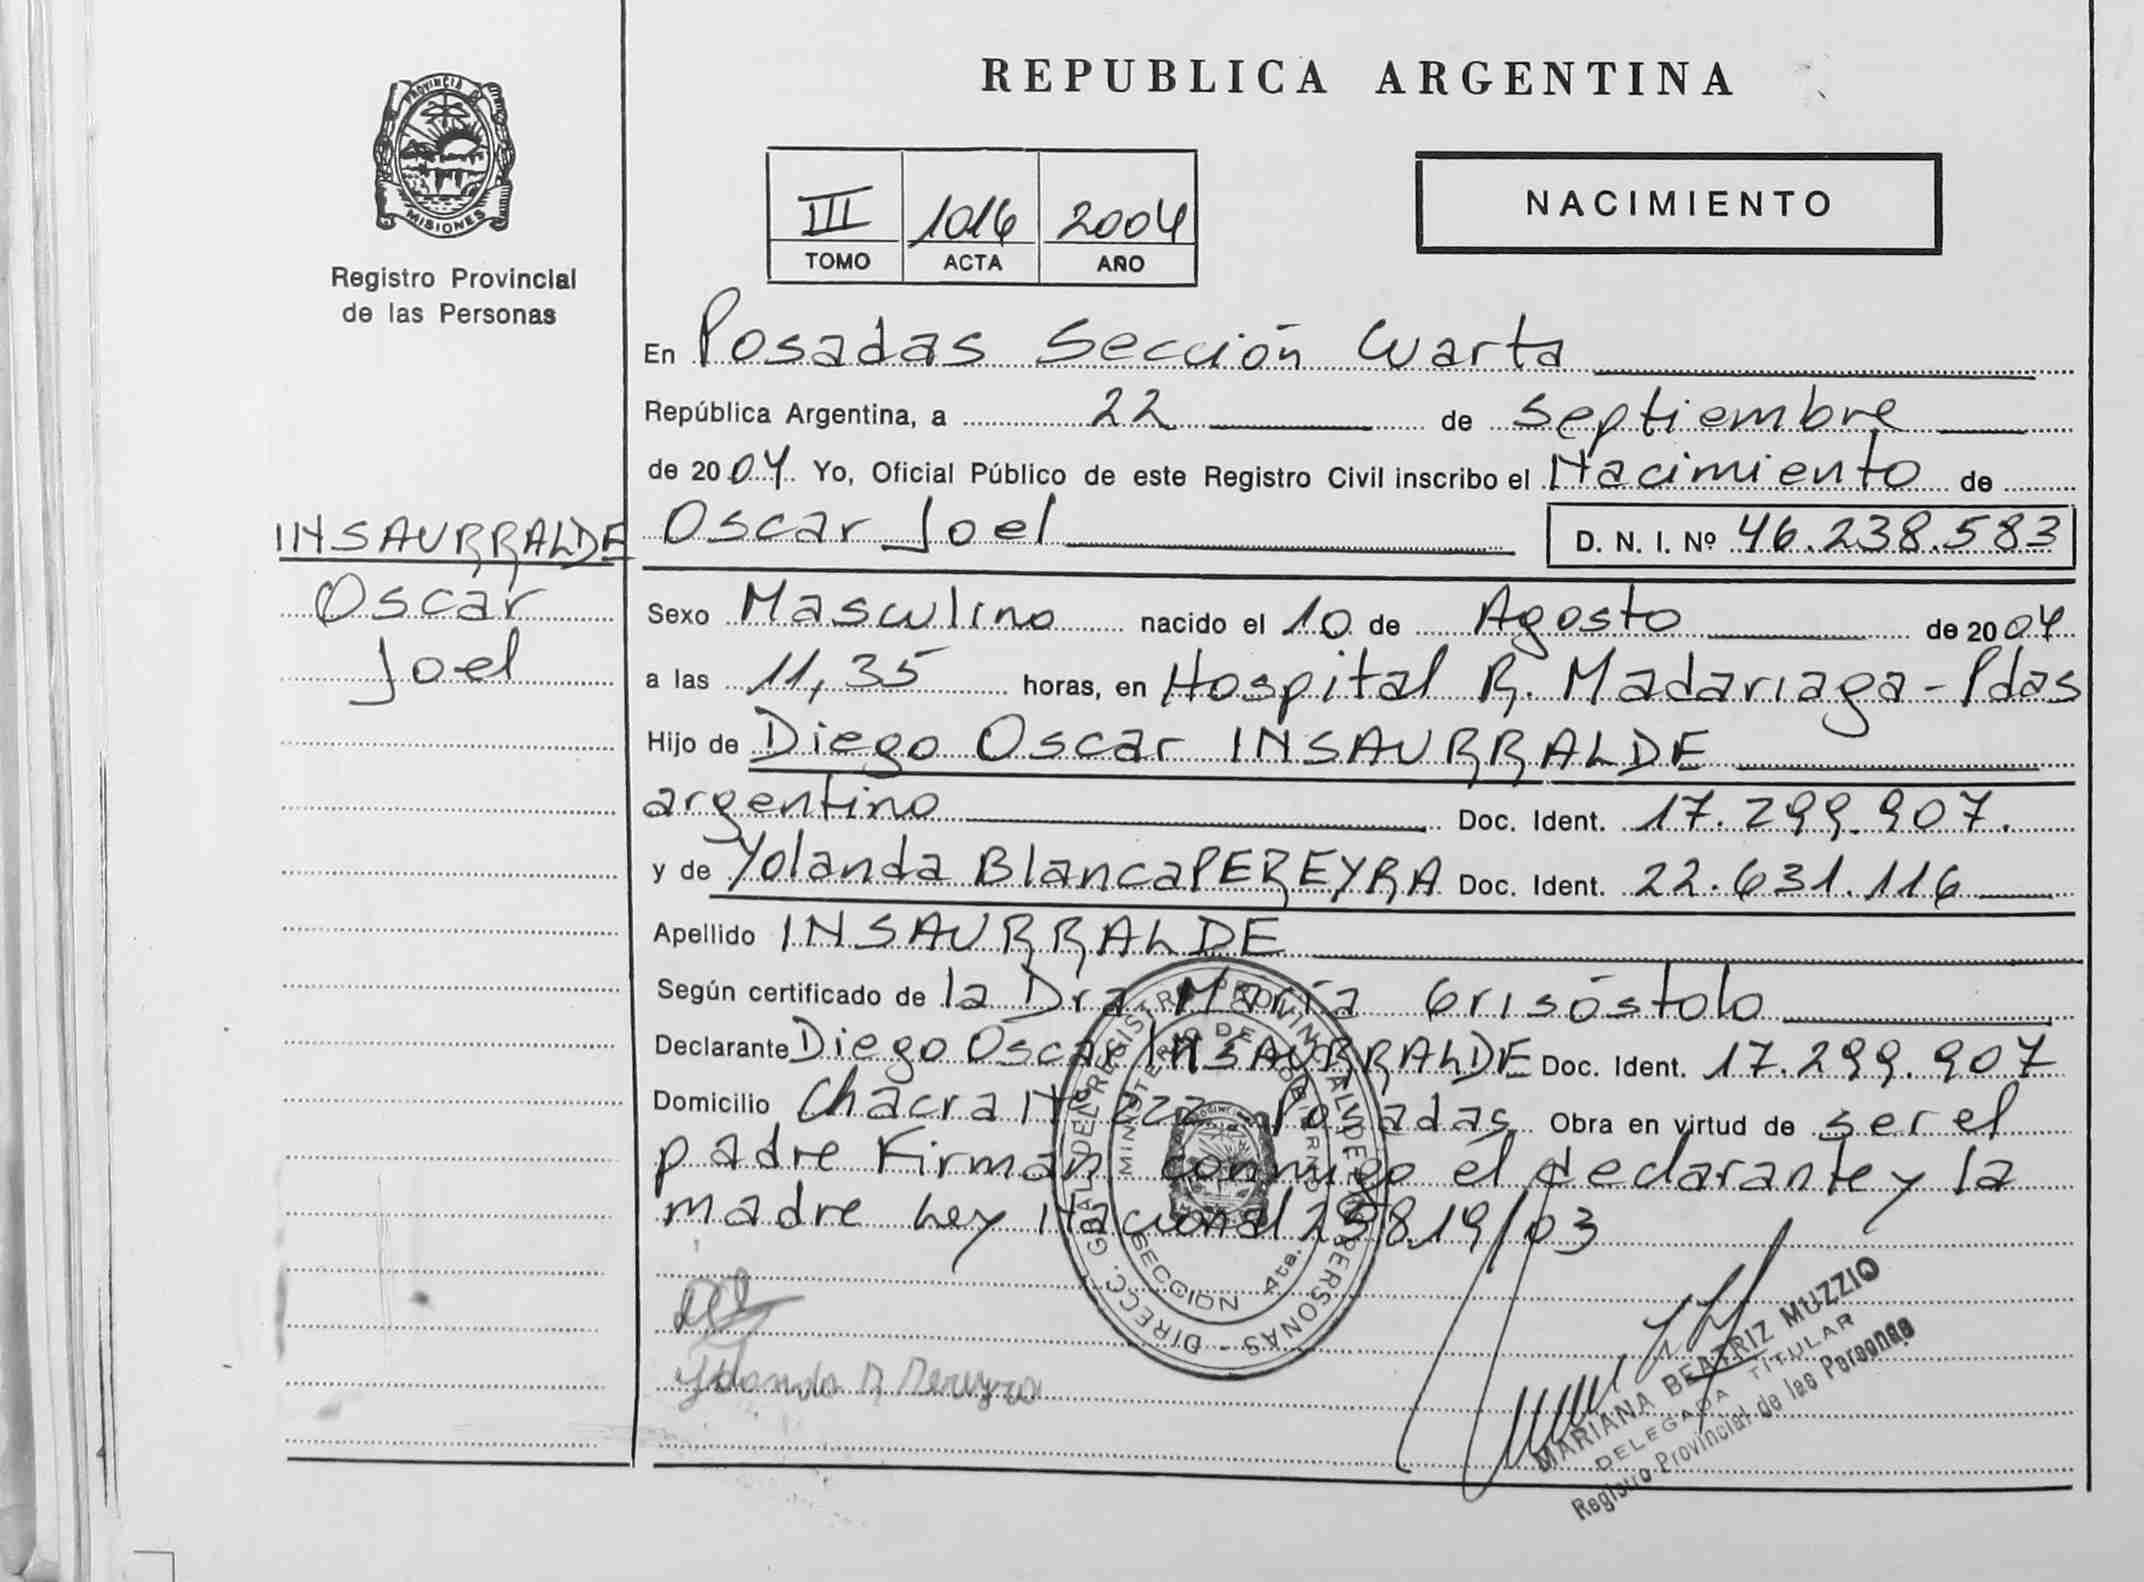 PROVINCIA DE
MISIONES
Registro Provincial
de las Personas
INSAURRALDE
Oscar
Joel
REPUBLICA ARGENTINA
III 1016 2004
TOMO ACTA AÑO
NACIMIENTO
En Posadas Sección Cuarta
República Argentina, a 22 de Septiembre
de 2004. Yo, Oficial Público de este Registro Civil inscribo el Nacimiento de
Oscar Joel D. N. I. Nº 46.238.583
Sexo Masculino nacido el 10 de Agosto de 2004
a las 11,35 horas, en Hospital R. Madariaga - Pdas
Hijo de Diego Oscar INSAURRALDE
argentino Doc. Ident. 17.299.907.
y de Yolanda Blanca PEREYRA Doc. Ident. 22.631.116
Apellido INSAURRALDE
Según certificado de la Dra María Grisóstolo
Declarante Diego Oscar INSAURRALDE Doc. Ident. 17.299.907
Domicilio Chacra Nº 222 Posadas Obra en virtud de ser el
padre Firman conmigo el declarante y la
madre Ley Nacional 25819/03
DIRECC. GRAL. DEL REGISTRO PROVINCIAL DE LAS PERSONAS
MINISTERIO DE GOBIERNO
SECCION 4ta.
Yolanda B Pereyra
MARIANA BEATRIZ MUZZIO
DELEGADA TITULAR
Registro Provincial de las Personas